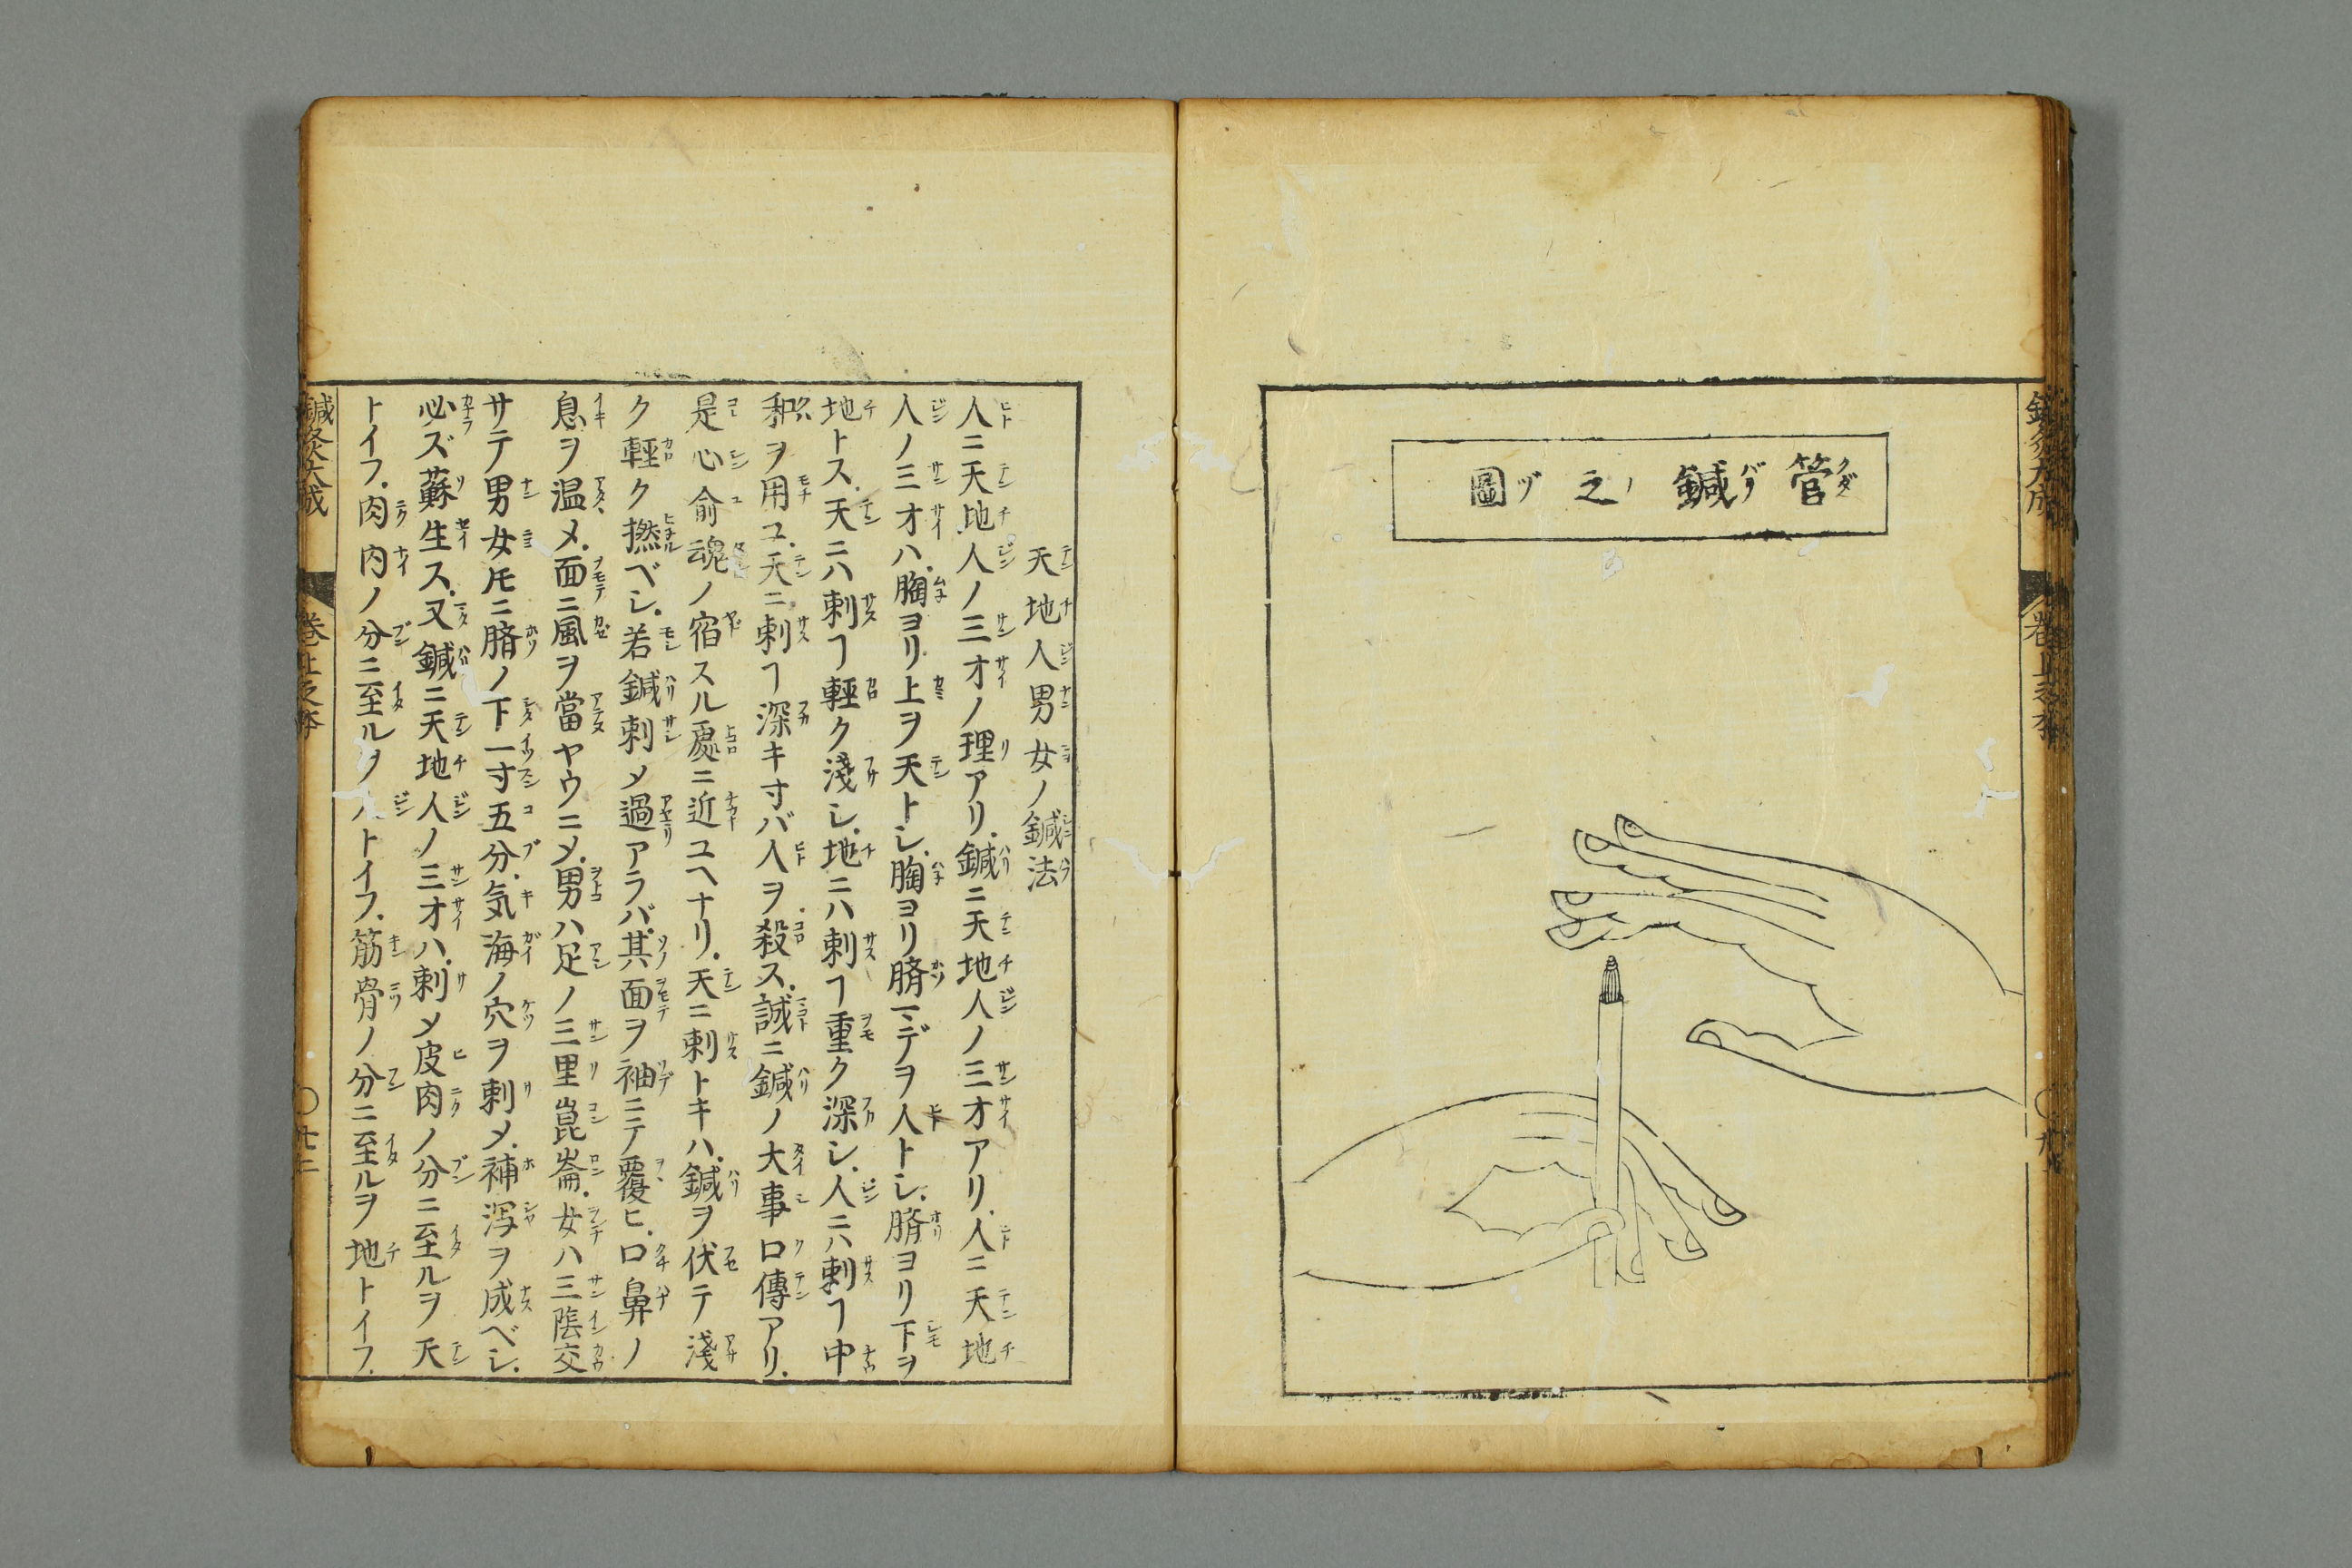 管鍼之圖
天地人男女ノ鍼法
人ニ天地人ノ三才ノ理アリ.鍼ニ天地人ノ三才アリ.人ニ天地
人ノ三才ハ.胸ヨリ上ヲ天トシ.胸ヨリ臍マデヲ人トシ.臍ヨリ下ヲ
地トス.天ニハ刺ヿ輕ク淺シ.地ニハ刺ヿ重ク深シ.人ニハ刺ヿ中
和ヲ用ユ.天ニ刺ヿ深キ寸バ人ヲ殺ス.誠ニ鍼ノ大事口傳アリ.
是心俞魂ノ宿スル處ニ近ユヘナリ.天ニ刺トキハ.鍼ヲ伏テ淺
ク輕ク撚ベシ.若鍼刺メ過アラバ.其面ヲ袖ニテ覆ヒ.口鼻ノ
息ヲ温メ.面ニ風ヲ當ヤウニメ.男ハ足ノ三里崑崙.女ハ三陰交
サテ男女モニ臍ノ下一寸五分.気海ノ穴ヲ刺メ.補瀉ヲ成ベシ.
必ズ蘇生ス.又鍼ニ天地人ノ三才ハ.刺メ皮肉ノ分ニ至ルヲ天
トイフ.肉内ノ分ニ至ルヲ人トイフ.筋骨ノ分ニ至ルヲ地トイフ.
鍼灸大成 卷上之本 〇廿二